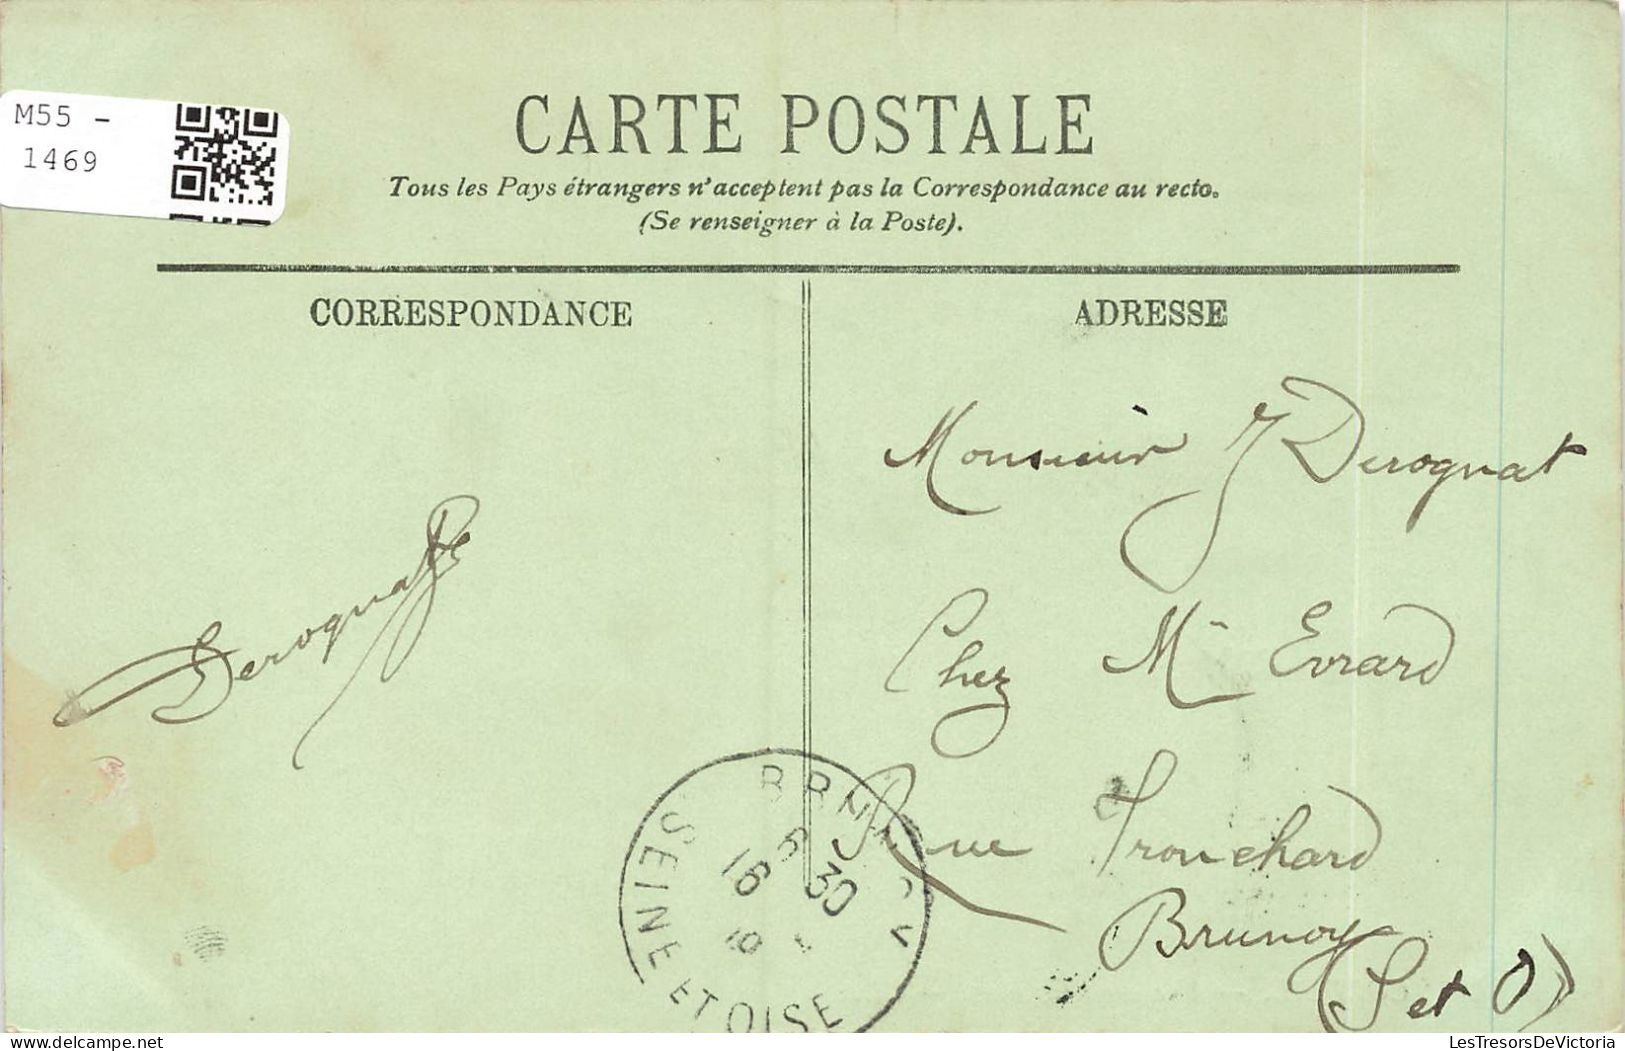 M55 -
1469
CARTE POSTALE
Tous les Pays étrangers n'acceptent pas la Correspondance au recto.
(Se renseigner à la Poste).
CORRESPONDANCE
ADRESSE
Monsieur J Derognat
Chez Mr Evrard
Rue Tronchard
Brunoy
(S et O)
Derognat
BRUNOY
6 30
16
SEINE ET OISE
LesTresorsDeVictoria